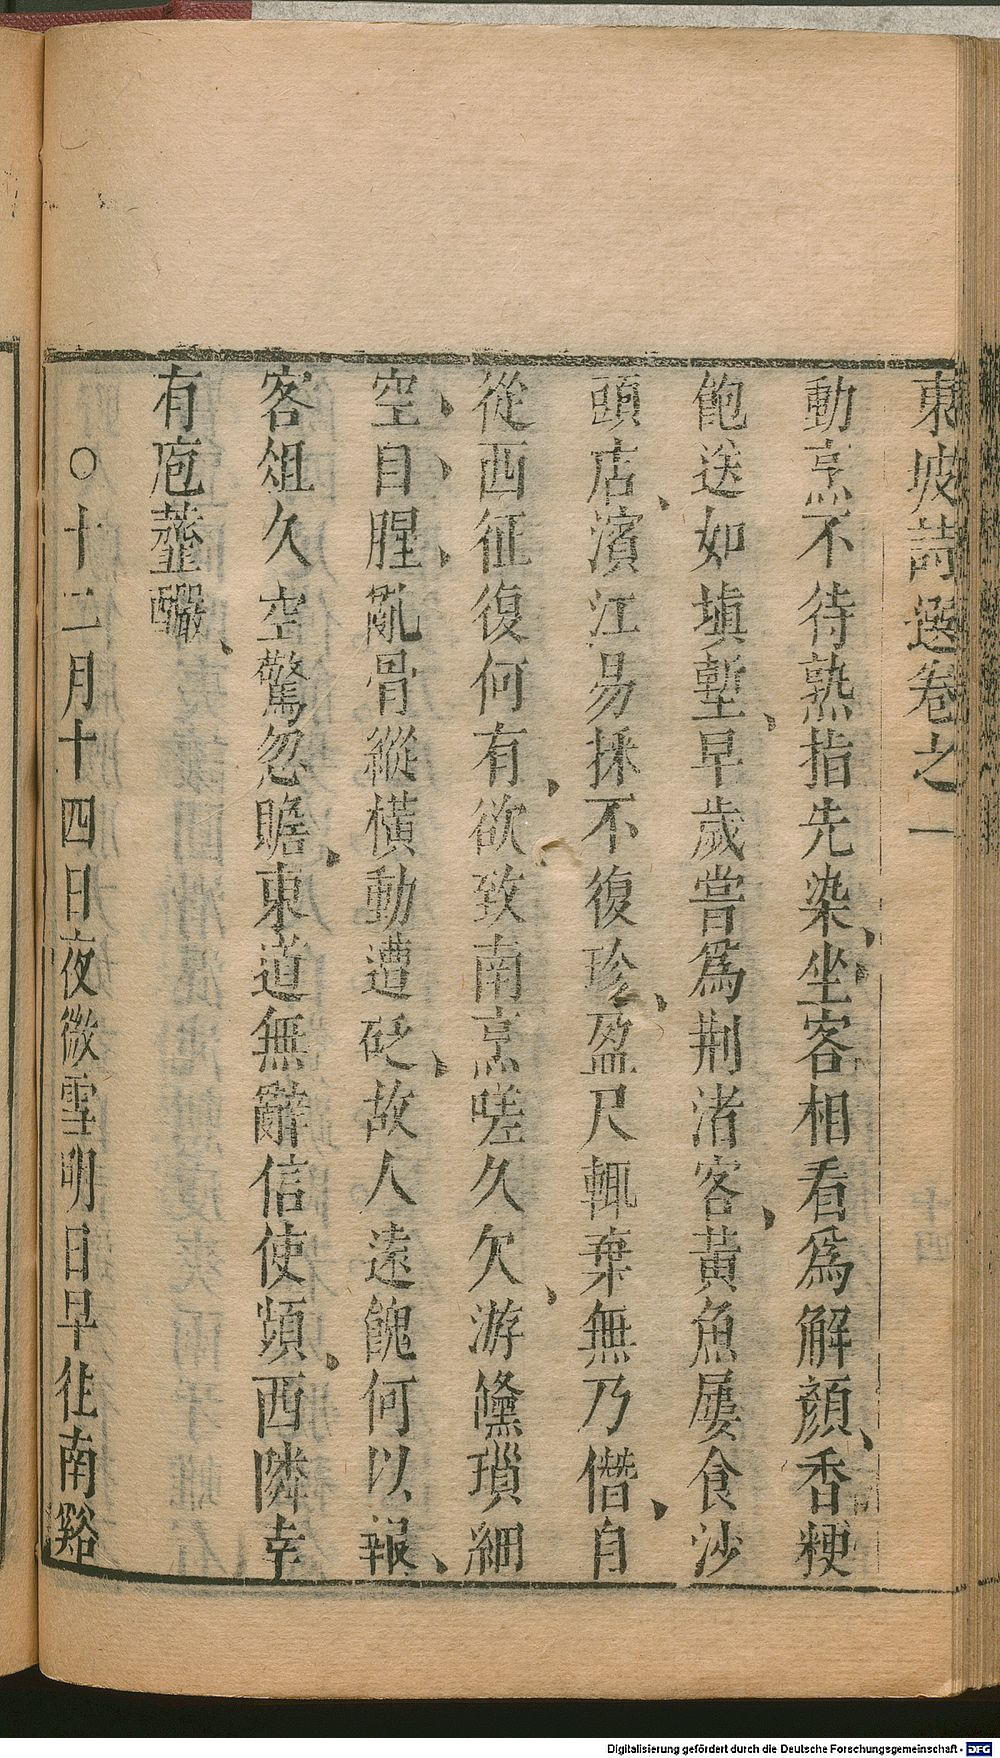 東坡詩選卷之一
動烹不待熟指先染、坐客相看爲解顏、香粳
飽送如塡塹、早歲嘗爲荆渚客、黃魚屢食沙
頭店、濱江易採不復珍、盈尺輒棄無乃僭、自
從西征復何有、欲致南烹嗟久欠、游儵瑣細
空、自腥、亂骨縱橫動遭砭、故人遠餽何以報、
客俎久空驚忽贍、東道無辭信使頻、西隣幸
有庖虀釅、
○十二月十四日夜微雪明日早徃南谿
十四
Digitalisierung gefördert durch die Deutsche Forschungsgemeinschaft - DFG